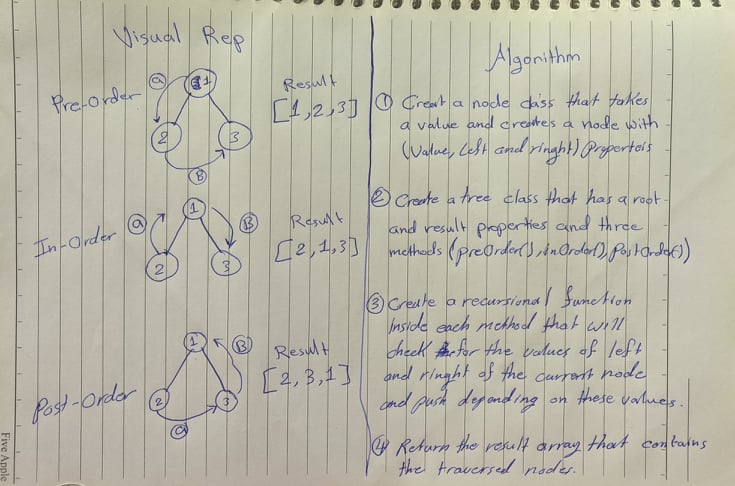 Visual Rep
Pre-Order
a
1
2
3
B
Result
[1,2,3]
In-Order
a
1
B
2
3
Result
[2,1,3]
Post-Order
1
B
2
3
a
Result
[2,3,1]
Algorithm
① Creat a node class that takes
a value and creates a node with
(Value, left and ringht) Properteis
② Create a tree class that has a root
and result properties and three
methods (preOrder(), inOrder(), PostOrder())
③ Create a recursional function
inside each method that will
check for the values of left
and ringht of the current node
and push depending on these values.
④ Return the result array that contains
the traversed nodes.
Five Apple